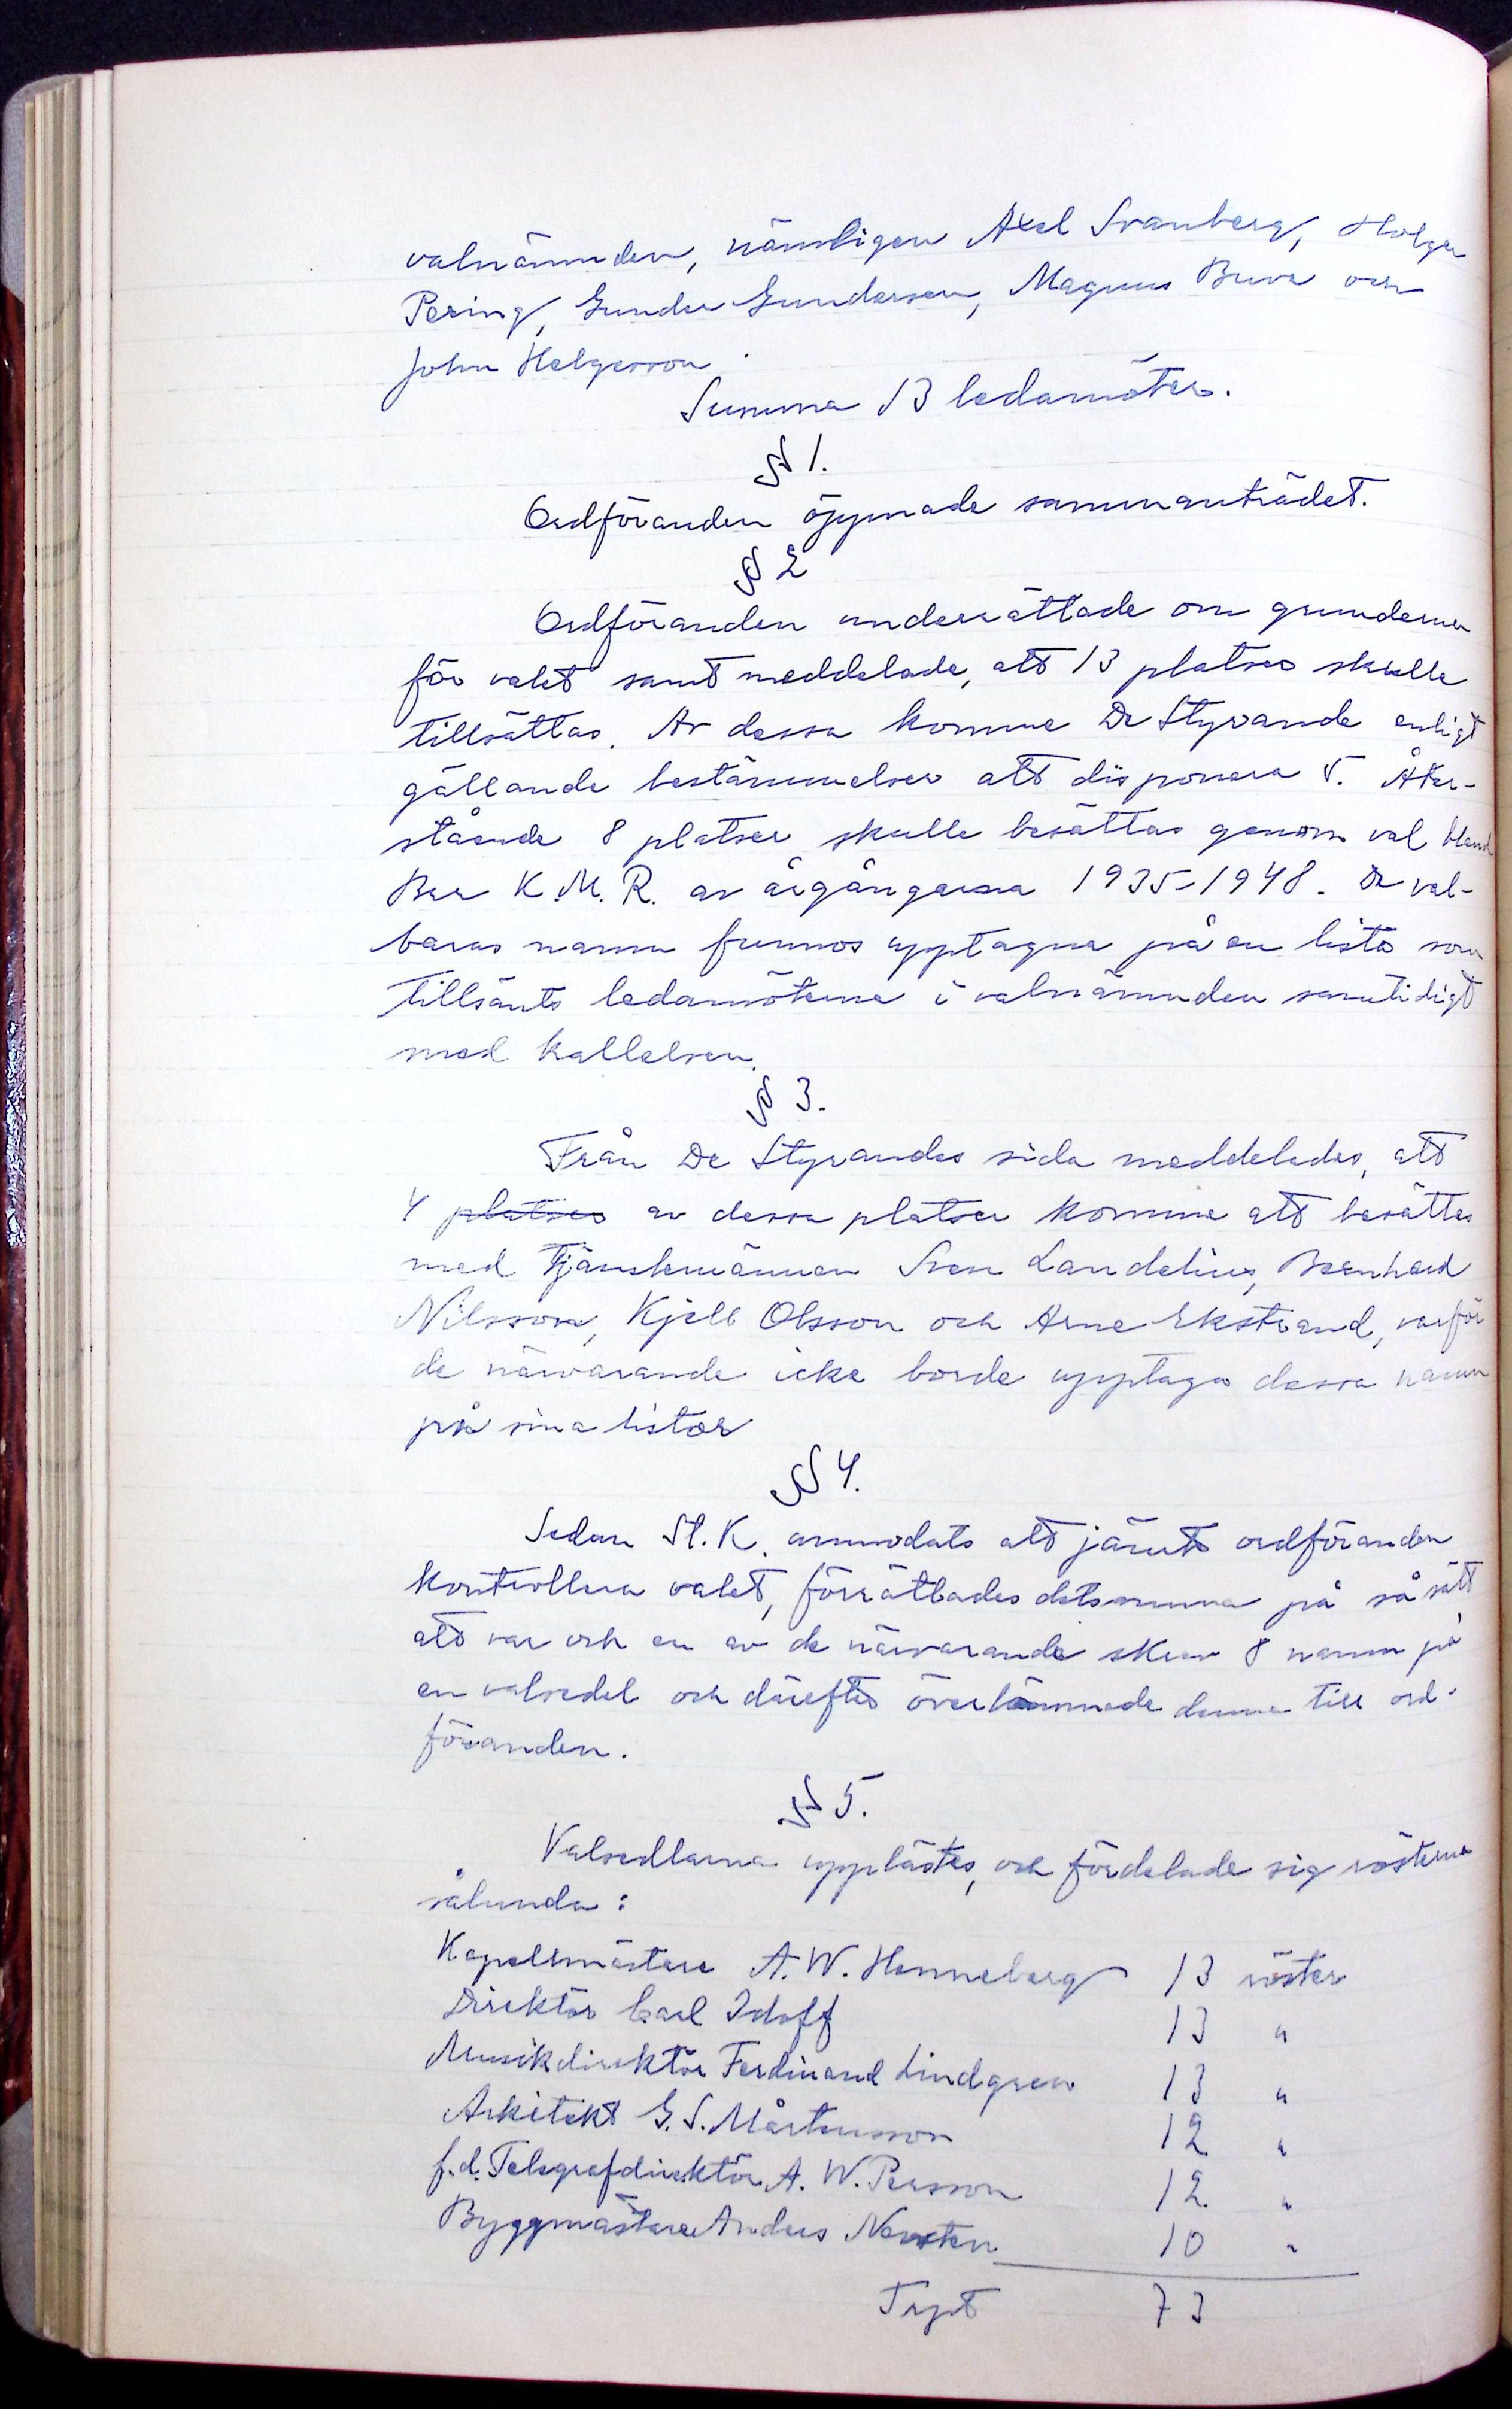 valnämnden, nämligen Axel Svanberg, Holger
Pering, Gunder Gundersen, Magnus Buve och
John Helgesson.
Summa 13 ledamöter.
§ 1.
Ordföranden öppnade sammanträdet.
§ 2
Ordföranden underrättade om grunderna
för valet samt meddelade, att 13 platser skulle
tillsättas. Av dessa komme De Styrande enligt
gällande bestämmelser att disponera 5. Åter-
stående 8 platser skulle besättas genom val bland
Brr K.M.R. av årgångarna 1935-1948. De val-
baras namn funnos upptagna på en lista som
tillsänts ledamöterna i valnämnden samtidigt
med kallelsen.
§ 3.
Från De Styrandes sida meddelades, att
4 platser av dessa platser komme att besättas
med tjänstemännen Sven Landelius, Bernhard
Nilsson, Kjell Olsson och Arne Ekstrand, varför
de närvarande icke borde upptaga dessa namn
på sina listor
§ 4.
Sedan St.K. anmodats att jämte ordföranden
kontrollera valet, förrättades detsamma på så sätt
att var och en av de närvarande skrev 8 namn på
en valsedel och därefter överlämnade denna till ord-
föranden.
§ 5.
Valsedlarna upplästes, och fördelade sig rösterna
sålunda:
Kapellmästare A. W. Henneberg 13 röster
Direktör Carl Idoff 13 "
Musikdirektör Ferdinand Lindgren 13 "
Arkitekt G. S. Mårtensson 12 "
f.d. Telegrafdirektör A. W. Persson 12 "
Byggmästare Anders Nevsten 10 "
Trpt 73